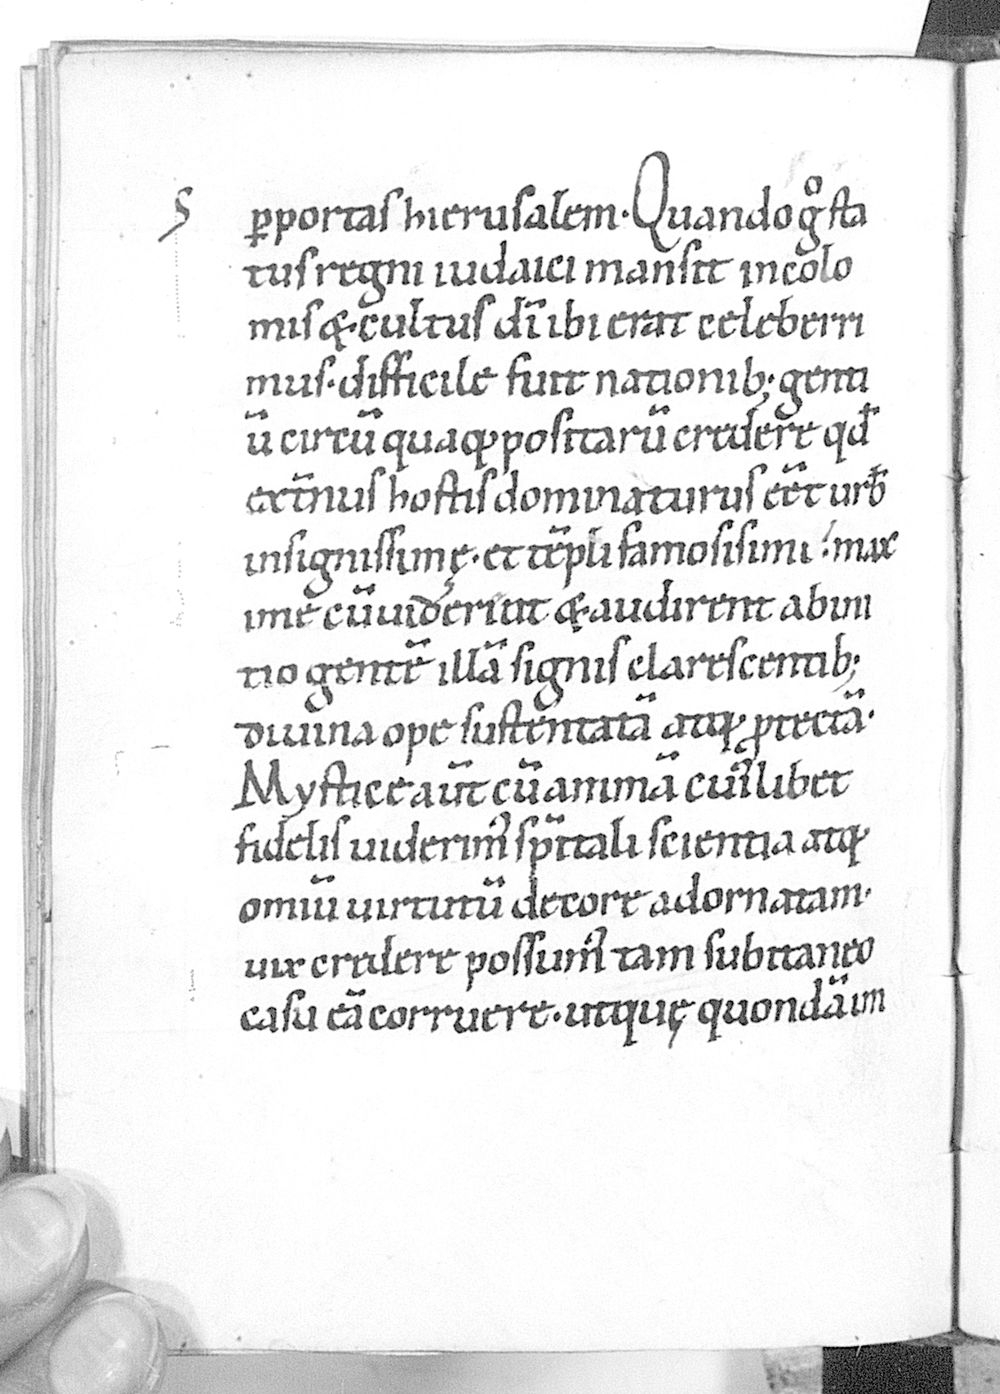 S
ꝑportas hierusalem. Quando gͦ sta
tus regni iudaici mansit incolo
mis &. cultus dī ibi erat celeberri
mus. difficile fuit nationib; genti
ū circū quaqꝫ positarū credere qđ
ext̄nus hostis dominaturus eēt urƀ
insignissimę. et tēpli famosisimi. max
ime cū uiderint &. audirent abini
tio gentē illā signis clarescentib;
diuina ope sustentatā atqꝫ ꝓtectā.
Mystice aūt cū animā cuiꝰlibet
fidelis uiderimꝰ sp̄itali scientia atqꝫ
omiū uirtutū decore adornatam.
uix credere possumꝰ tam subitaneo
casu eā corruere. utque quondā im